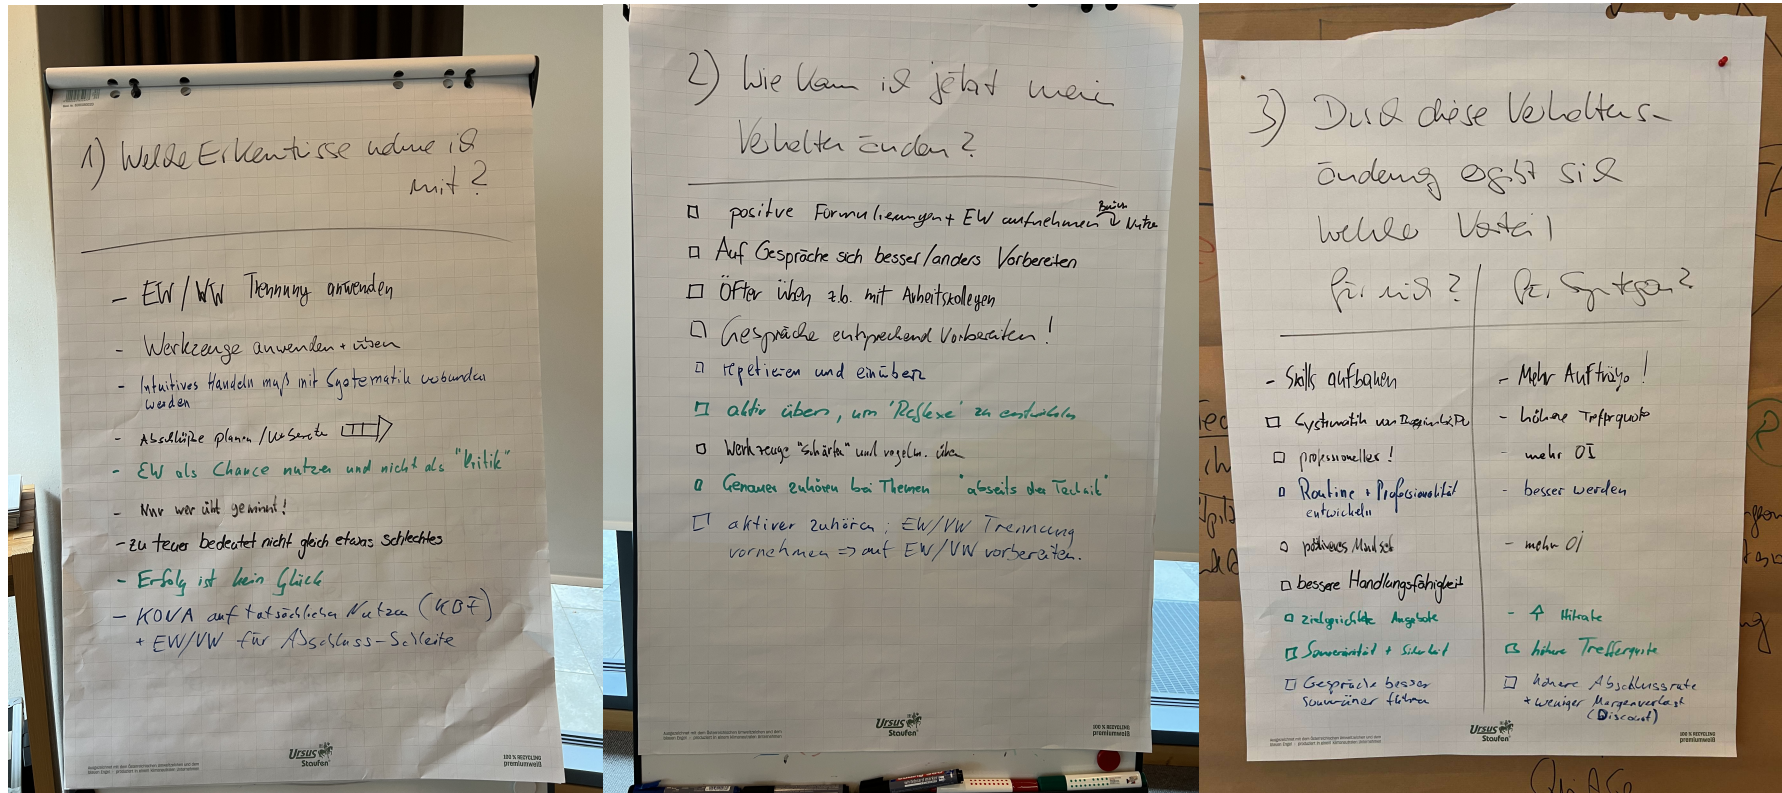 1) Welche Erkentnisse nehme ich
mit?
- EW/VW Trennung anwenden
- Werkzeuge anwenden + üben
- Intuitives Handeln muß mit Systematik verbunden
werden
- Abschlüße planen /
- EW als Chance nutzen und nicht als "Kritik"
- Nur wer übt gewinnt!
- zu teuer bedeutet nicht gleich etwas schlechtes
- Erfolg ist kein Glück
- KOVA auf tatsächlichen Nutzen (KBF)
+ EW/VW für Abschluss-Schleife
Ursus
Staufen
100 % RECYCLING
premiumweiß
2) Wie kann ich jetzt mein
Verhalten ändern?
positive Formulierungen + EW aufnehmen Nutzen
Auf Gespräche sich besser/anders Vorbereiten
Öfter üben z.b. mit Arbeitskollegen
Gespräche entsprechend Vorbereiten!
repetieren und einüben
aktiv üben, um 'Reflexe' zu entwickeln
Werkzeuge "schärfen" und regelm. üben
Genauer zuhören bei Themen "abseits der Technik"
aktiver zuhören; EW/VW Trennung
vornehmen => auf EW/VW vorbereiten.
Ursus
Staufen
100 % RECYCLING
premiumweiß
3) Durch diese Verhaltens-
änderung ergibt sich
welcher Vorteil
für mich? für Syntegon?
- Skills aufbauen
Systematik von
professioneller!
Routine + Professionalität
entwickeln
positiveres Mindset
bessere Handlungsfähigkeit
zielgerichtete Angebote
Souveränität + Sicherheit
Gespräche besser
souveräner führen
- Mehr Aufträge!
- höhere Trefferquote
- mehr OI
- besser werden
- mehr OI
- ↑ Hitrate
höhere Trefferquote
höhere Abschlussrate
+ weniger Margenverlust
(Discount)
Ursus
Staufen
100 % RECYCLING
premiumweiß